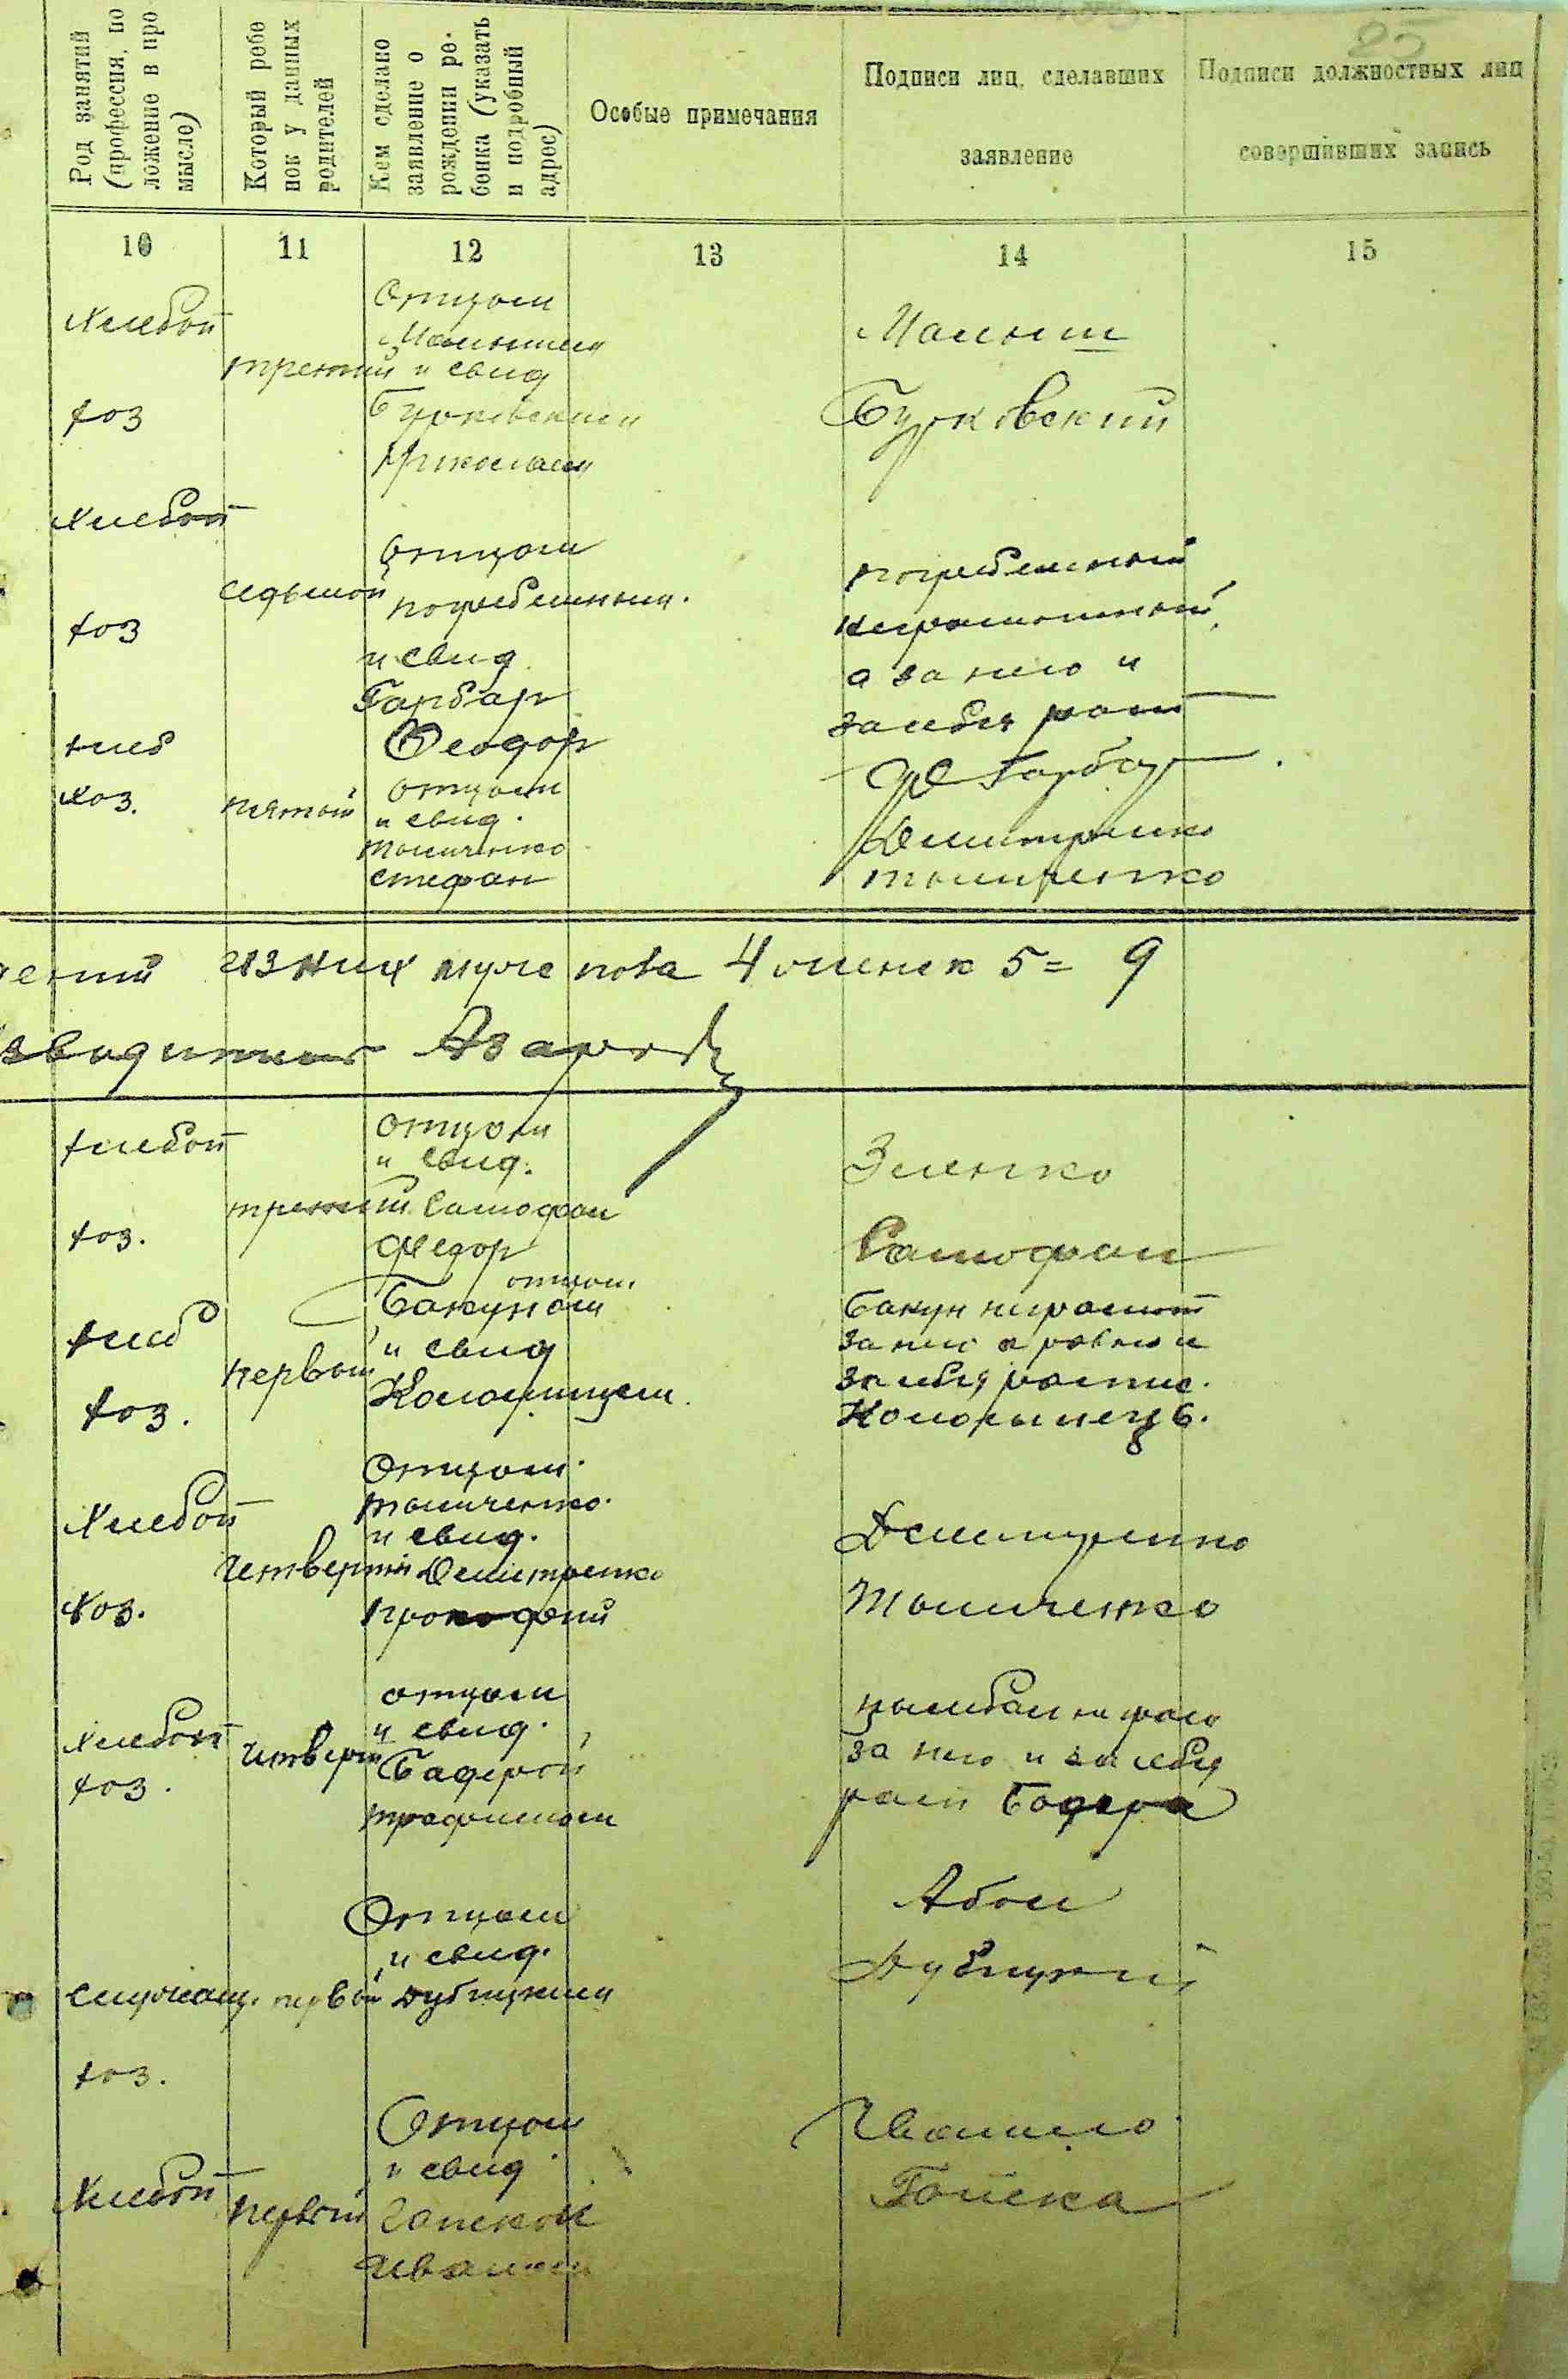 25
Род занятий (профессия, по
ложение в про
мысле)
Который ребе
нок у данных
родителей
Кем сделано
заявление о
рождении ре-
бенка (указать
и подробный
адрес)
Особые примечания
Подписи лиц, сделавших
заявление
Подписи должностных лиц
совершивших запись
10 11 12 13 14 15
Хлебоп
хоз
третий
Отцом
и свид
Бурковским
Николаем
Бурковский
Хлебоп
хоз
седьмой
Отцом
погребенным.
и свид
Гарбар
Феодор
погребенный
неграмотный,
а за него и
за себя расп
Гарбар
хлеб
хоз.
пятый
отцом
и свид.
Томиченко
Стефан
Демитренко
Томиченко
из них муж пола 4 и женск 5 = 9
Хлебоп
хоз.
третий
отцом
и свид.
Самофал
Федор
Зиенко
Самофал
хлеб
хоз.
первый
отцом
Бакуном
и свид
Коломийцем
Бакун неграмот
за него а равно и
за себя распис.
Коломыецъ Б.
Хлебоп
хоз.
четвертый
Отцом.
Томиченко.
и свид.
Демитренко
Прокофий
Демитренко
Томиченко
Хлебоп
хоз.
четверт
отцом
и свид.
Бадерой
Трофимом
за него и за себя
расп Бадера
Служащ. первый
хоз.
Отцом
и свид.
Дубицким
Дубицкий
Хлебоп
первый
Отцом
и свид
Гапекой
Иваном